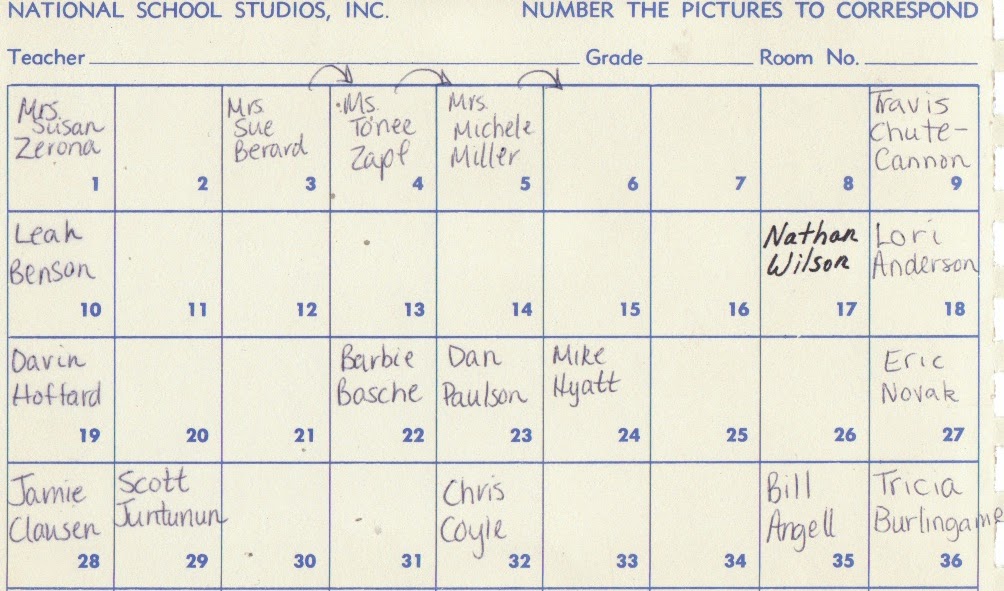 NATIONAL SCHOOL STUDIOS, INC. NUMBER THE PICTURES TO CORRESPOND
Teacher Grade Room No.
Mrs. Susan Zerona 1
2
Mrs. Sue Berard 3
Ms. Tònee Zapf 4
Mrs. Michele Miller 5
6
7
8
Travis Chute-Cannon 9
Leah Benson 10
11
12
13
14
15
16
Nathan Wilson 17
Lori Anderson 18
Davin Hoffard 19
20
21
Barbie Basche 22
Dan Paulson 23
Mike Hyatt 24
25
26
Eric Novak 27
Jamie Clausen 28
Scott Juntunun 29
30
31
Chris Coyle 32
33
34
Bill Angell 35
Tricia Burlingame 36